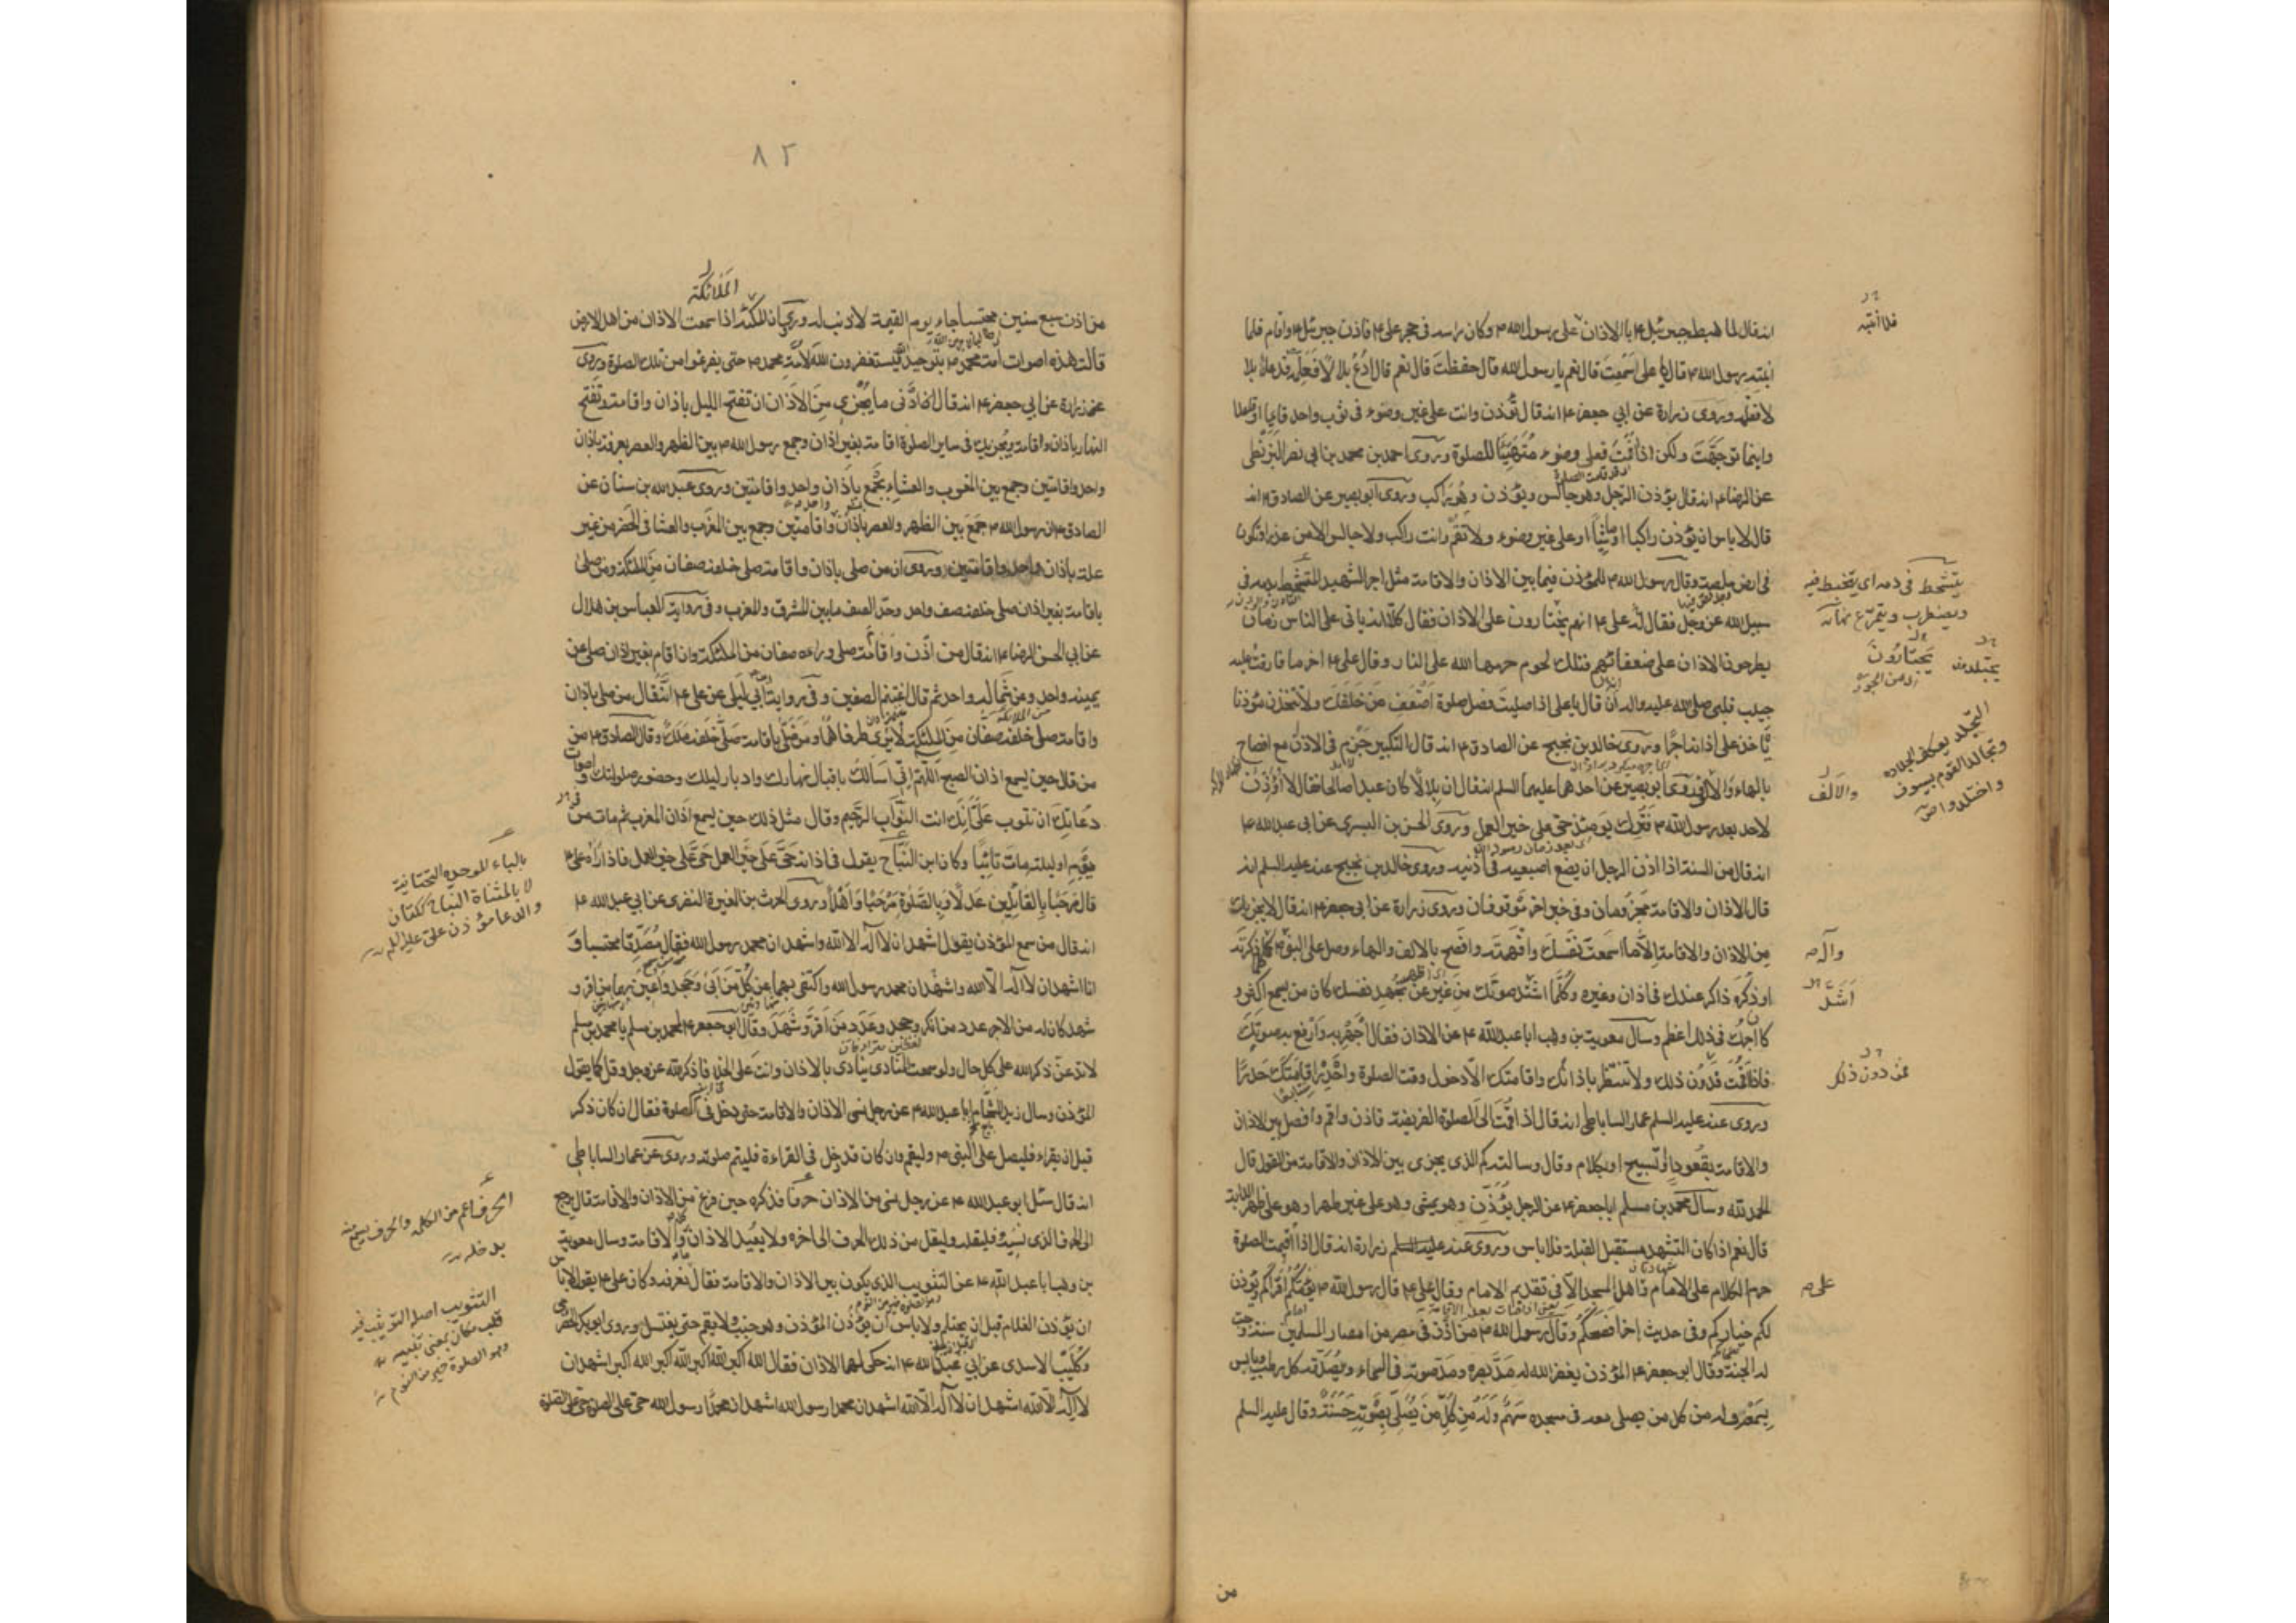 انه قال لما هبط جبرئيل ع بالاذان على رسول الله ص وكان راسه فى حجر على ع فاذن جبرئيل ع واقام فلما
انتبه رسول الله ص قال يا على اسمعت قال نعم يا رسول الله قال حفظت قال نعم قال ادع بلالا فعلمه فدعا بلالا
فعلمه وروى زرارة عن ابي جعفر ع انه قال تؤذن وانت على غير وضوء فى ثوب واحد قايما او قاعدا
واينما توجهت ولكن اذا اقمت فعلى وضوء متهيئا للصلوة وروى احمد بن محمد بن ابي نصر البزنطى
عن الرضا ع انه قال يؤذن الرجل وهو جالس ويؤذن وهو راكب وروى ابو بصير عن الصادق ع انه
قال لا باس ان تؤذن راكبا او ماشيا او على غير وضوء ولا تقم وانت راكب ولا جالس الا من عذر او تكون
فى ارض ملصة وقال رسول الله ص للمؤذن فيما بين الاذان والاقامة مثل اجر الشهيد المتشحط بدمه فى
سبيل الله عز وجل فقال له على ع انهم يختارون على الاذان فقال كلا انه ياتى على الناس زمان
يطرحون الاذان على ضعفائهم فتلك لحوم حرمها الله على النار وقال على ع اخر ما فارقت عليه
حبيب قلبى صلى الله عليه واله ان قال يا على اذا صليت فصل صلوة اضعف من خلفك ولا تتخذن مؤذنا
ياخذ على اذانه اجرا وروى خالد بن نجيح عن الصادق ع انه قال التكبير جزم فى الاذان مع افصاح
بالهاء والالف وروى ابو بصير عن احدهما عليهما السلم انه قال ان بلالا كان عبدا صالحا فقال لا اؤذن
لاحد بعد رسول الله ص فترك يومئذ حى على خير العمل وروى الحسن بن السرى عن ابى عبد الله ع
انه قال من السنة اذا اذن الرجل ان يضع اصبعيه فى اذنيه وروى خالد بن نجيح عنه عليه السلم انه
قال الاذان والاقامة مجزومان وفى خبر اخر موقوفان وروى زرارة عن ابى جعفر ع انه قال لا يجزيك
من الاذان والاقامة الا ما اسمعت نفسك وافهمته وافصح بالالف والهاء وصل على النبى ص كلما ذكرته
او ذكره ذاكر عندك فى اذان وغيره وكلما اشتد صوتك من غير ان تجهد نفسك كان من يسمع اكثر و
كان اجرك فى ذلك اعظم وسال معوية بن وهب ابا عبد الله ع عن الاذان فقال اجهر به وارفع به صوتك
فاذا اقمت فدون ذلك ولا تنتظر باذانك واقامتك الا دخول وقت الصلوة واحدر اقامتك حدرا
وروى عنه عليه السلم عمار الساباطى انه قال اذا قمت الى الصلوة الفريضة فاذن واقم وافصل بين الاذان
والاقامة بقعود او تسبيح او بكلام وقال وسالته كم الذى يجزى بين الاذان والاقامة من القول قال
الحمد لله وسال محمد بن مسلم ابا جعفر ع عن الرجل يؤذن وهو يمشى وهو على غير طهر او هو على ظهر الدابة
قال نعم اذا كان التشهد مستقبل القبلة فلا باس وروى عنه عليه السلم زرارة انه قال اذا اقيمت الصلوة
حرم الكلام على الامام واهل المسجد الا فى تقديم الامام وقال على ع قال رسول الله ص يؤمكم اقرأكم ويؤذن
لكم خياركم وفى حديث اخر افصحكم وقال رسول الله ص من اذن فى مصر من امصار المسلمين سنة وجبت
له الجنة وقال ابو جعفر ع المؤذن يغفر الله له مد بصره ومد صوته فى السماء ويصدقه كل رطب ويابس
يسمعه وله من كل من يصلى معه فى مسجده سهم وله من كل من يصلى بصوته حسنة وقال عليه السلم
من
يتشحط فى دمه اى يتخبط فيه
ويضطرب ويتمرغ
يجتازون
والالف
وآله ص
اشد
فمن دون ذلك
على ص
٨٢
الملائكة
من اذن سبع سنين محتسبا جاء يوم القيمة لا ذنب له وروى ان الملئكة اذا سمعت الاذان من اهل الارض
قالت هذه اصوات امة محمد ص بتوحيد الله فيستغفرون الله لامة محمد ص حتى يفرغوا من تلك الصلوة وروى
عنه زرارة عن ابي جعفر ع انه قال ان ادنى ما يجزى من الاذان ان تفتح الليل باذان واقامة وتفتح
النهار باذان واقامة ويجزيك فى ساير الصلوة اقامة بغير اذان وجمع رسول الله ص بين الظهر والعصر بعرفة باذان
واحد واقامتين وجمع بين المغرب والعشاء بجمع باذان واحد واقامتين وروى عبد الله بن سنان عن
الصادق ع ان رسول الله ص جمع بين الظهر والعصر باذان واقامتين وجمع بين المغرب والعشا فى الحضر من غير
علة باذان واحد واقامتين وروى ان من صلى باذان واقامة صلى خلفه صفان من الملئكة ومن صلى
باقامة بغير اذان صلى خلفه صف واحد وحد الصف ما بين المشرق والمغرب وفى رواية العباس بن هلال
عن ابي الحسن الرضا ع انه قال من اذن واقام صلى وراءه صفان من الملئكة وان اقام بغير اذان صلى عن
يمينه واحد وعن شماله واحد ثم قال اغتنم الصفين وفى رواية ابن ابي ليلى عن على ع انه قال من صلى باذان
واقامة صلى خلفه صفان من الملئكة لا يرى طرفاهما ومن صلى باقامة صلى خلفه ملك وقال الصادق ع من
قال حين يسمع اذان الصبح اللهم انى اسالك باقبال نهارك وادبار ليلك وحضور صلواتك واصوات
دعاتك ان تتوب على انك انت التواب الرحيم وقال مثل ذلك حين يسمع اذان المغرب ثم مات من
يومه او ليلته مات تائبا وكان ابن النباح يقول فى اذانه حى على خير العمل حى على خير العمل فاذا راه على ع
قال مرحبا بالقائلين عدلا وبالصلوة مرحبا واهلا وروى الحرث بن المغيرة النضرى عن ابي عبد الله ع
انه قال من سمع المؤذن يقول اشهد ان لا اله الا الله واشهد ان محمد رسول الله فقال مصدقا محتسبا و
انا اشهد ان لا اله الا الله واشهد ان محمد رسول الله واكتفى بهما عن كل من ابى وجحد واعين بهما من اقر و
شهد كان له من الاجر عدد من انكر وجحد وعدد من اقر وشهد وقال ابو جعفر ع لمحمد بن مسلم يا محمد بن مسلم
لا تدعن ذكر الله على كل حال ولو سمعت المنادى ينادى بالاذان وانت على الخلا فاذكر الله عز وجل وقل كما يقول
المؤذن وسال زيد الشحام ابا عبد الله ع عن رجل نسى الاذان والاقامة حتى دخل فى الصلوة فقال ان كان ذكر
قبل ان يقراء فليصل على النبى ص وليقم وان كان قد دخل فى القراءة فليتم صلوته وروى عن عمار الساباطى
انه قال سئل ابو عبد الله ع عن رجل نسى من الاذان حرفا فذكره حين فرغ من الاذان والاقامة قال يرجع
الى الحرف الذى نسيه فليقله وليقل من ذلك الحرف الى اخره ولا يعيد الاذان كله والاقامة وسال معوية
بن وهب ابا عبد الله ع عن التثويب الذى يكون بين الاذان والاقامة فقال ما نعرفه وكان على ع يقول لا باس
ان يؤذن الغلام قبل ان يحتلم ولا باس ان يؤذن المؤذن وهو جنب ولا يقم حتى يغتسل وروى ابو بكر الحضرمى
وكليب الاسدى عن ابي عبد الله ع انه حكى لهما الاذان فقال الله اكبر الله اكبر الله اكبر الله اكبر اشهد ان
لا اله الا الله اشهد ان لا اله الا الله اشهد ان محمدا رسول الله اشهد ان محمدا رسول الله حى على الصلوة حى على الصلوة
بالباء الموحدة التحتانية
لا بالمثناة النباح ككتان
والد عامر مؤذن على عليه السلم
الحرف اعم من الكلمة
وهو الصلوة خير من النوم